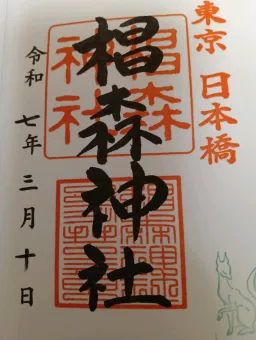 東京 日本橋
椙森神社
椙森
神社
令和七年三月十日